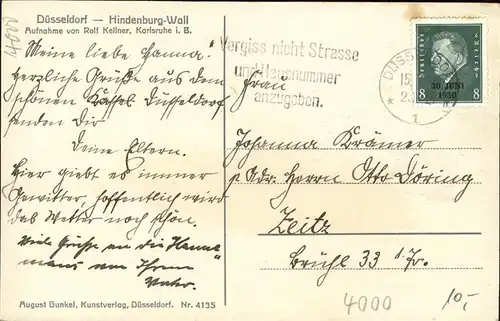 Düsseldorf — Hindenburg-Wall
Aufnahme von Rolf Kellner, Karlsruhe i. B.
4000
Meine liebe Hanna!
herzliche Grüße aus dem
schönen Düsseldorf
senden Dir
Deine Eltern.
Hier giebt es immer
Gewitter, hoffentlich wird
das Wetter noch schön.
Viele Grüße an die
von Ihrem
August Gunkel, Kunstverlag, Düsseldorf. Nr. 4135
Vergiss nicht Strasse
und Hausnummer
anzugeben.
DÜSS
15
1
Deutsches Reich
8 8
30. JUNI
1930
Frau
Johanna Krämer
p. Adr. Herrn Otto Döring
Zeitz
Brühl 33 I Tr.
4000
10,-